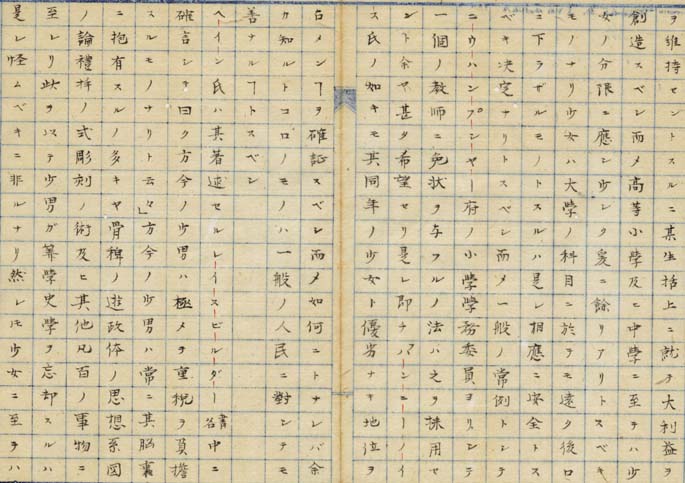 ヲ維持セントスルニ其生括上ニ就テ大利益ヲ
創造スベシ而メ高等小學及ヒ中學ニ至テハ少
女ノ分限ニ應シ少シク爰ニ餘リアリトスベキ
モノナリ少女ハ大學ノ科目ニ於テモ遠ク後ロ
ニ下ラザルモノトスルハ是レ相應ニ安全トス
ベキ决定ナリトスベシ而メ一般ノ常例トシテ
ニウハンプシヤー府ノ小學學務委員ヨリシテ
一個ノ教師ニ免状ヲ与フルノ法ハ之ヲ採用セ
ント余ヤ甚タ希望セリ是レ即ナハンニーノイ
ス氏ノ如キモ其同年ノ少女ト優劣ナキ地位ヲ
占メンヿヲ確証スベシ而メ如何ニトナレバ余
カ知ルトコロノモノハ一般ノ人民ニ對シテモ
善ナルヿトスベシ
ヘイン氏ハ其著述セルレイスビルダー書名中ニ
確言シテ曰ク方今ノ少男ハ極メテ重税ヲ負擔
スルモノナリト云々」方今ノ少男ハ常ニ其脳裏
ニ抱有スルノ多キヤ骨稗ノ遊政体ノ思想系図
ノ論禮拝ノ式彫刻ノ術及ヒ其他凡百ノ事物ニ
至レリ此ヲ以テ少男ガ算學史學ヲ忘却スルハ
是レ怪ムベキニ非ルナリ然レ𪜈少女ニ至テハ